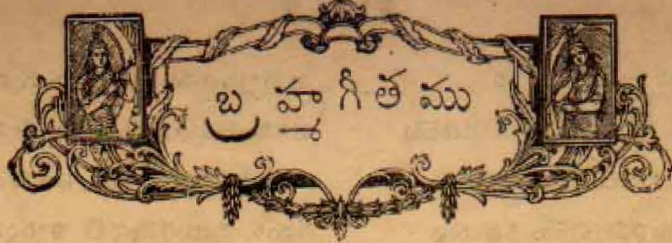 బ్రహ్మగీతము